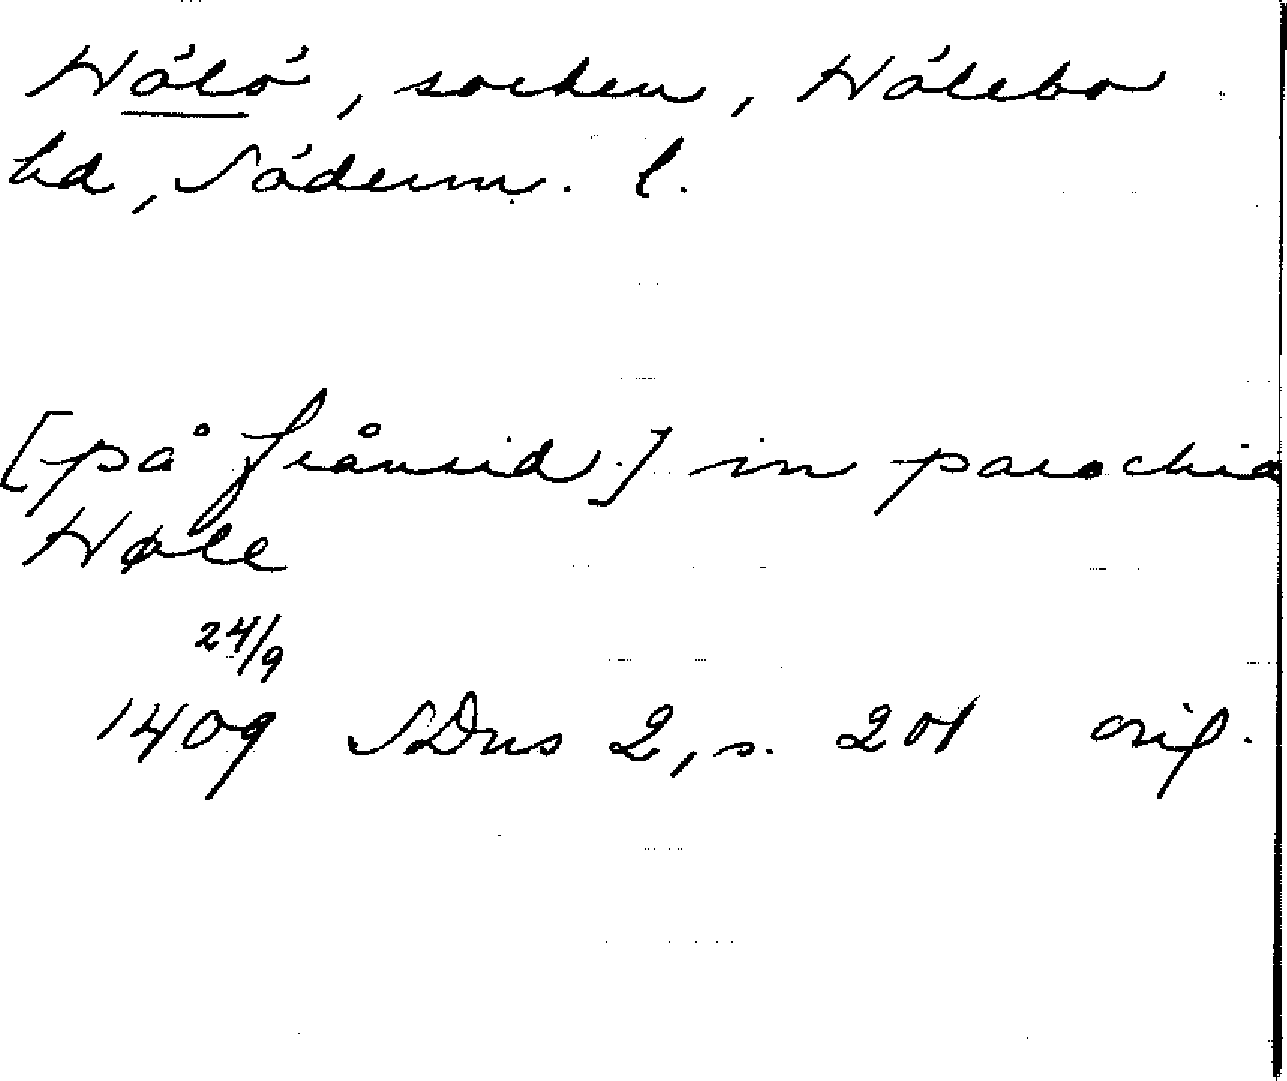 Hölö, socken, Hölebo
hd, Söderm. l.
[på frånsid.] in parochia
Høle
24/9
1409 SDns 2, s. 201 orig.